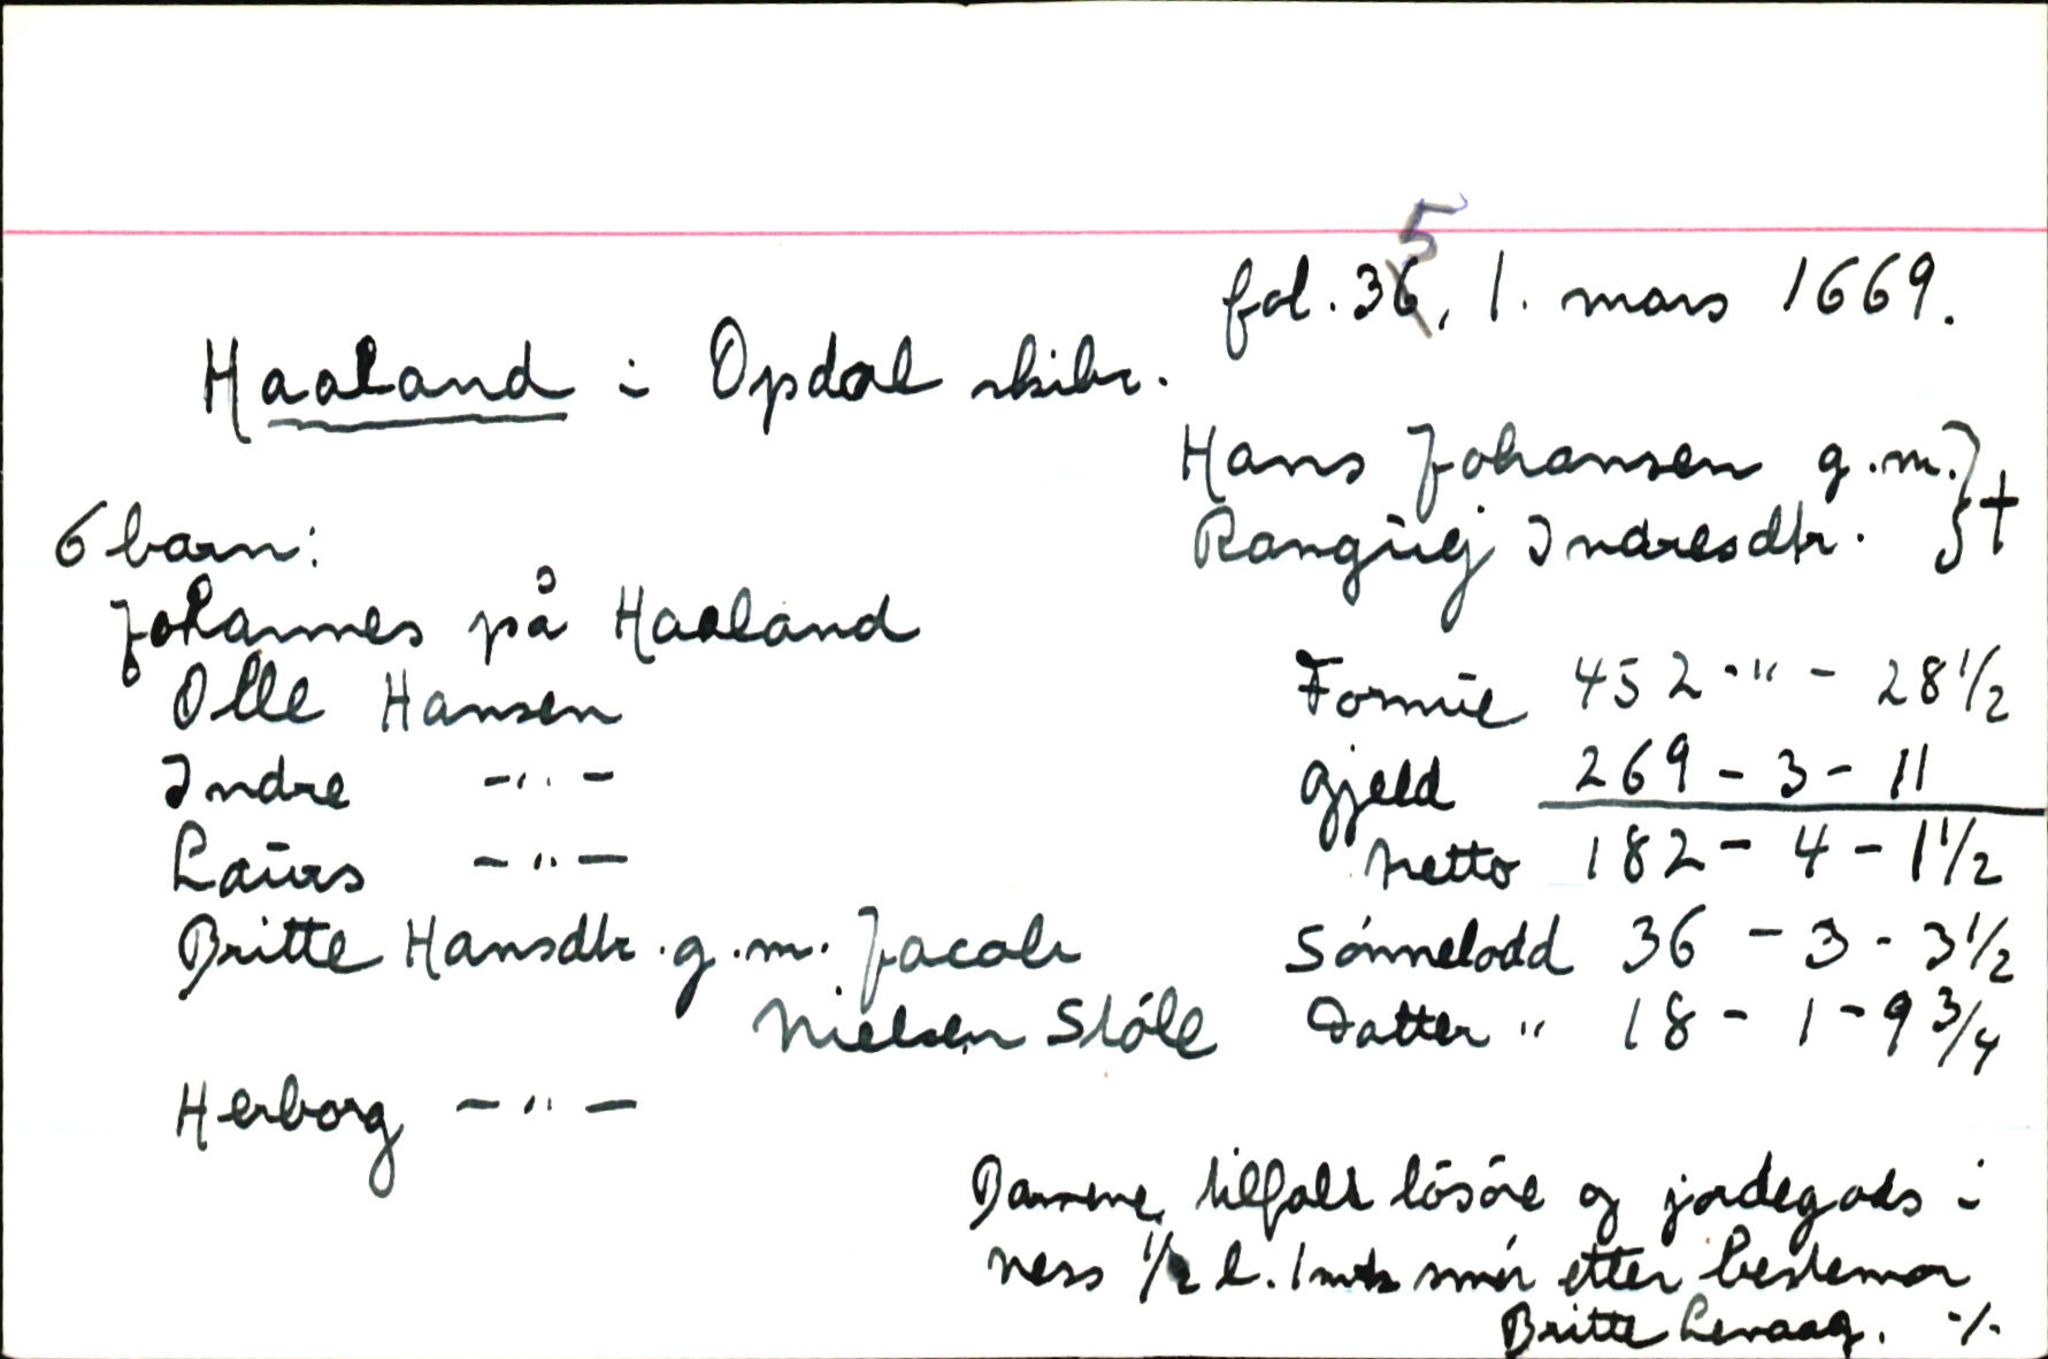 fol. 35, 1. mars 1669.
Haaland i Opdal skibr.
Hans Johansen g.m.
Rangüej Indresdtr. } †
6 barn:
Johannes på Haaland
Olle Hansen
Indre -"-
Laürs -"-
Britte Hansdtr. g.m. Jacob
Nielsen Støle
Herborg -"-
Formüe 452 - " - 28 1/2
Gjeld 269 - 3 - 11
Netto 182 - 4 - 1 1/2
Sónnelodd 36 - 3 - 3 1/2
Datter " 18 - 1 - 9 3/4
Barnene tilfalt lósóre og jordegods i
Ness 1/2 l. 1 mk smór etter bestemor
Britte Levaag. ./.